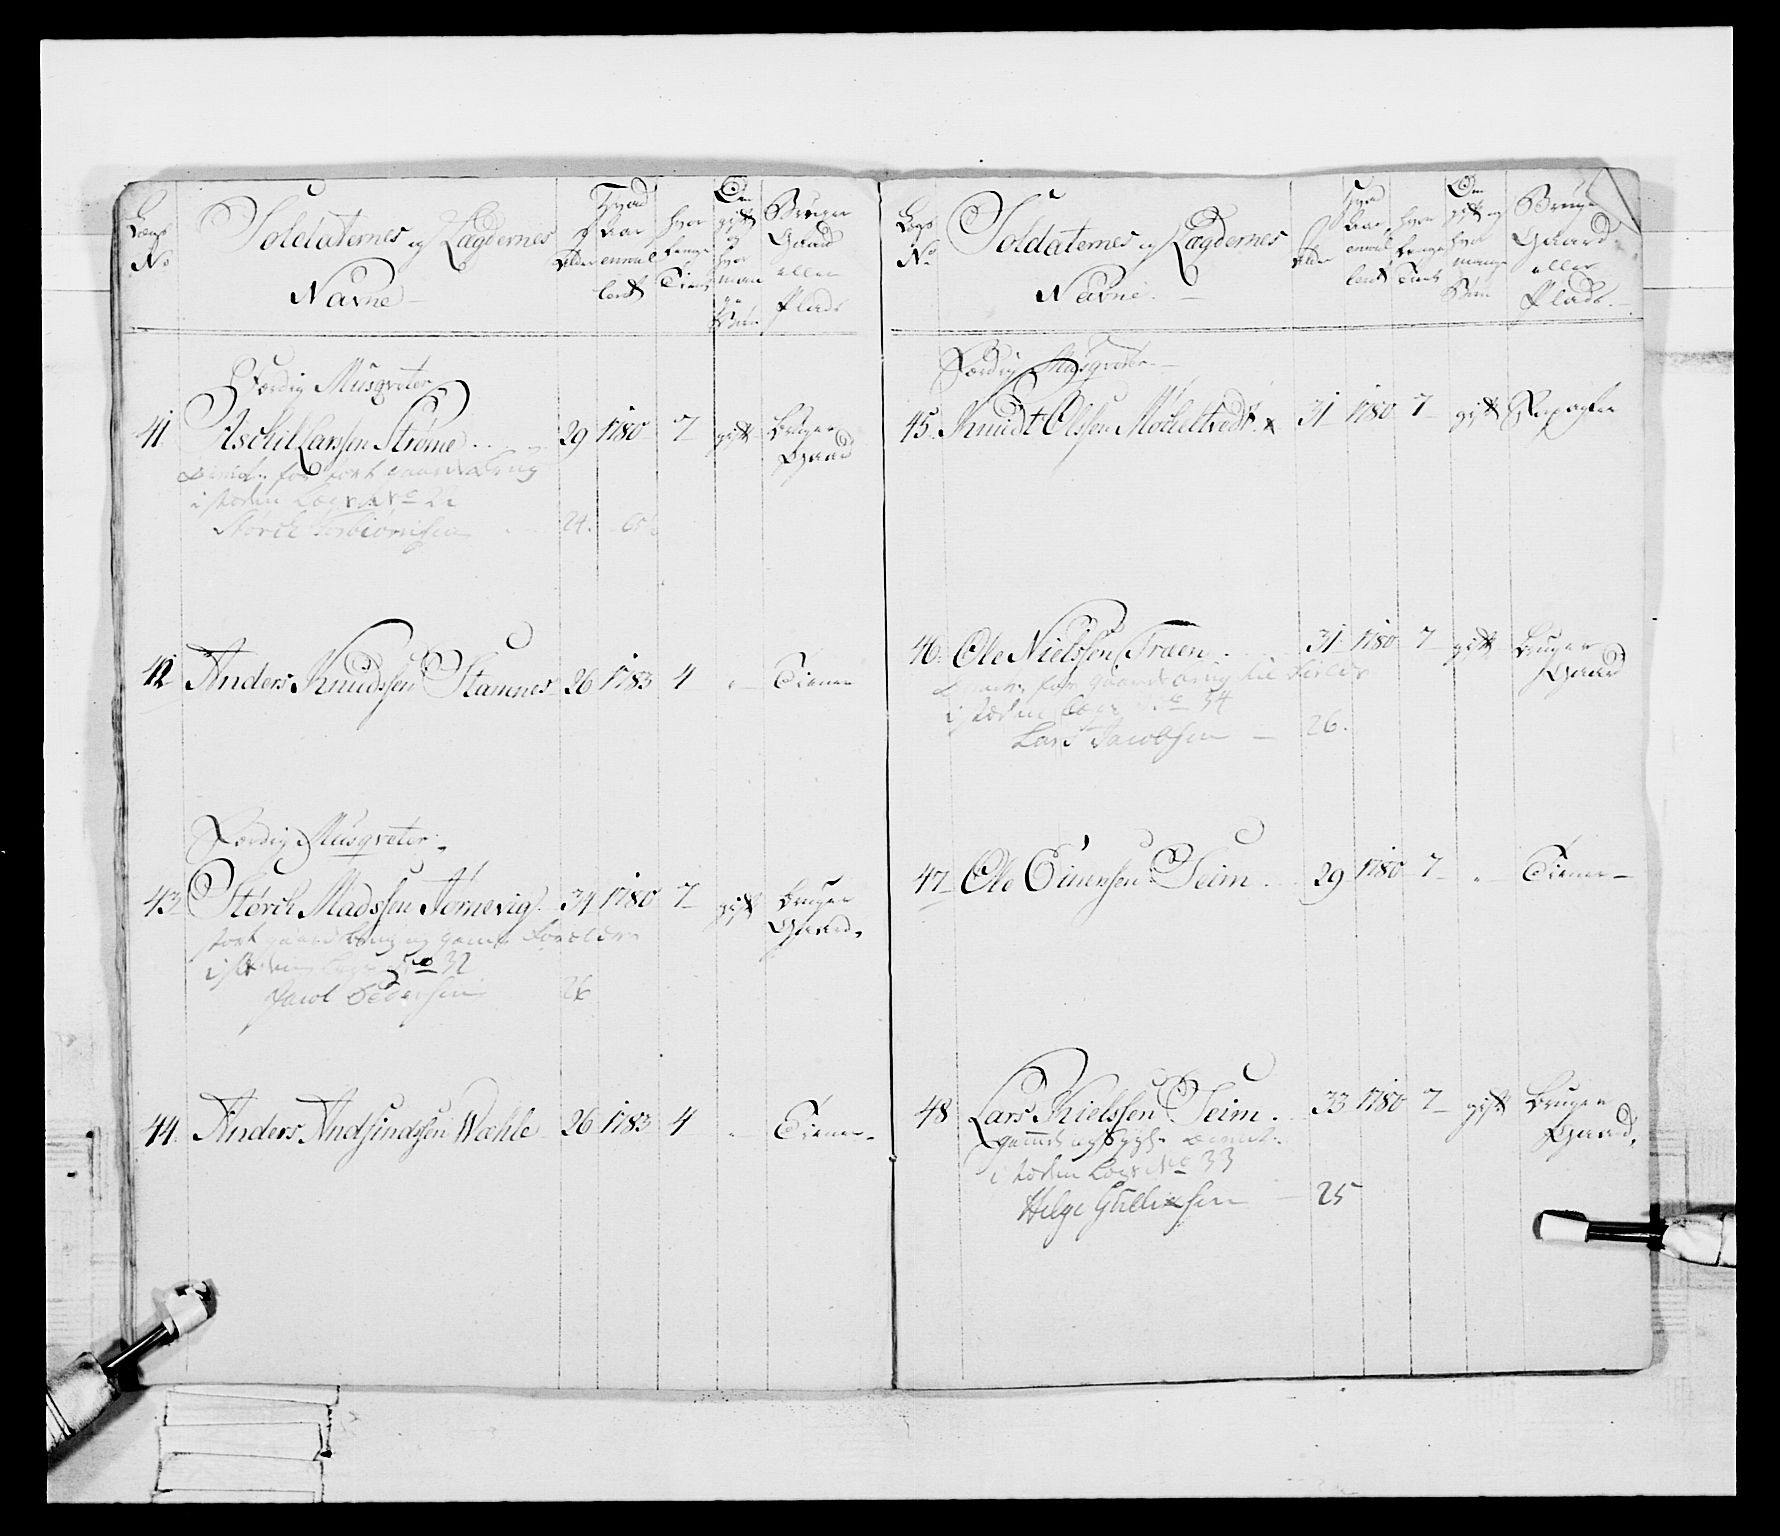 Lægs No
Soldaternes og Lægdernes Navne
Alder
Hvad Aar enroul lert
hvor længe Tient
Om gift og hvor man ge Børn
Bruger Gaard eller Plads
Færdig Musqveter
41 Aschil Larssen Strøme 29 1780 7 gift bruger Gaard
i støden Lægd No 22
Størck Torbiørnsen 24.
42 Anders Knudssen Stamnes 26 1783 4 " Tiener
Færdig Musqveter
43 Størck Madssen Tørnevig 34 1780 7 gift bruger Gaard
i støden Lægd No 32
Jacob Pedersen 26
44. Anders Andfindssen Wæhle 26 1783 4 " Tiener
Lægs No
Soldaternes og Lægdernes Navne
Alder
Hvad Aar enroul lert
hvor længe Tient
Om gift og hvor mange Børn
Bruger Gaard eller Plads
Færdig Musqveter
45. Knudt Olssen Møcheltvedt x 31 1780 7 gift
46. Ole Nielssen Træen 31 1780 7 gift bruger Gaard
i støden Lægd No 34
Lars Jacobsen 26.
47 Ole Einersen Seim 29 1780 7 " Tiener
48 Lars Nielssen Seim 33 1780 7 gift bruger Gaard
i støden Lægd No 33
Helge 25